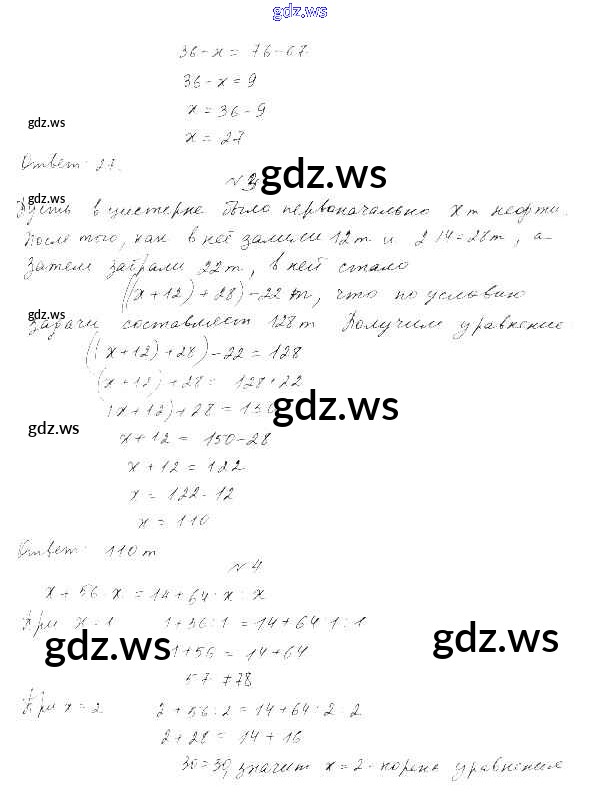 gdz.ws
36-x = 76-67
36-x=9
x=36-9
gdz.ws
x=27
Ответ: 27.
№3 gdz.ws
gdz.ws
Пусть в цистерне было первоначально x т нефти.
После того, как в неё залили 12т и 2·14=28т, а
затем забрали 22т, в ней стало
((x+12)+28)-22 т, что по условию
gdz.ws
задачи составляет 128т Получим уравнение
((x+12)+28)-22=128
(x+12)+28= 128+22
(x+12)+28 = 150
gdz.ws
gdz.ws
x+12 = 150-28
x+12=122
x=122-12
x=110
Ответ: 110т
№4
x+56:x=14+64:x:x
При x=1 1+56:1=14+64:1:1
gdz.ws
gdz.ws
1+56=14+64
57≠78
При x=2 2+56:2=14+64:2:2
2+28=14+16
30=30, значит x=2-корень уравнения